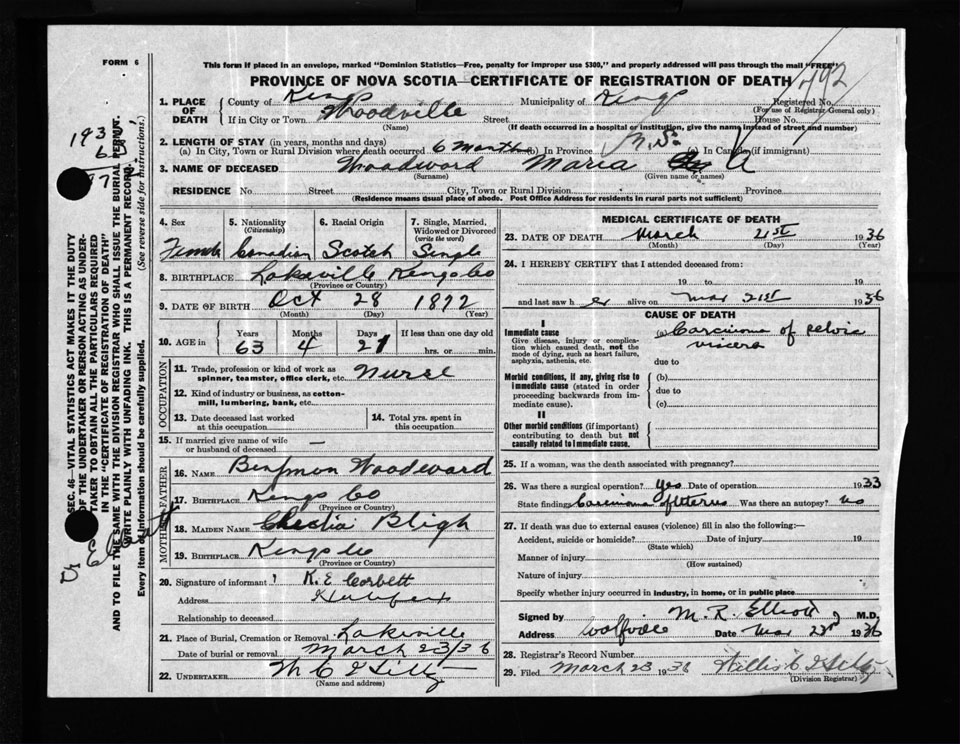 FORM 6
This form if placed in an envelope, marked "Dominion Statistics—Free, penalty for improper use $300," and properly addressed will pass through the mail "FREE"
PROVINCE OF NOVA SCOTIA—CERTIFICATE OF REGISTRATION OF DEATH
792
1. PLACE OF DEATH County of Kings Municipality of Kings Registered No. (For use of Registrar General only)
If in City or Town Woodville (Name) Street House No.
(If death occurred in a hospital or institution, give the name instead of street and number)
2. LENGTH OF STAY (in years, months and days)
(a) In City, Town or Rural Division where death occurred 6 months (b) In Province N.S. (c) In Canada (if immigrant)
3. NAME OF DECEASED Woodward Maria A
(Surname) (Given name or names)
RESIDENCE No. Street City, Town or Rural Division Province
(Residence means usual place of abode. Post Office Address for residents in rural parts not sufficient)
4. Sex 5. Nationality (Citizenship) 6. Racial Origin 7. Single, Married, Widowed or Divorced (write the word)
Female Canadian Scotch Single
8. BIRTHPLACE Lakeville Kings Co
(Province or Country)
9. DATE OF BIRTH Oct 28 1872
(Month) (Day) (Year)
10. AGE in Years Months Days If less than one day old
63 4 21 hrs. or min.
OCCUPATION
11. Trade, profession or kind of work as spinner, teamster, office clerk, etc. Nurse
12. Kind of industry or business, as cotton-mill, lumbering, bank, etc.
13. Date deceased last worked at this occupation
14. Total yrs. spent in this occupation
15. If married give name of wife or husband of deceased —
FATHER
16. NAME Woodward
17. BIRTHPLACE Kings Co
(Province or Country)
MOTHER
18. MAIDEN NAME Bligh
19. BIRTHPLACE Kings Co
(Province or Country)
20. Signature of informant K. E Corbett
Address
Relationship to deceased
21. Place of Burial, Cremation or Removal Lakeville
Date of burial or removal March 23/36
22. UNDERTAKER
(Name and address)
MEDICAL CERTIFICATE OF DEATH
23. DATE OF DEATH March 21st 1936
(Month) (Day) (Year)
24. I HEREBY CERTIFY that I attended deceased from:
19 to 19
and last saw h er alive on Mar 21st 1936
CAUSE OF DEATH
I
Immediate cause (a) Carcinoma of pelvic viscera
Give disease, injury or complication which caused death, not the mode of dying, such as heart failure, asphyxia, asthenia, etc.
due to
Morbid conditions, if any, giving rise to immediate cause (stated in order proceeding backwards from immediate cause).
(b)
due to
(c)
II
Other morbid conditions (if important) contributing to death but not causally related to immediate cause.
25. If a woman, was the death associated with pregnancy?
26. Was there a surgical operation? Yes Date of operation 1933
State findings Carcinoma of uterus Was there an autopsy? no
27. If death was due to external causes (violence) fill in also the following:—
Accident, suicide or homicide? Date of injury 19
(State which)
Manner of injury
(How sustained)
Nature of injury
Specify whether injury occurred in industry, in home, or in public place
Signed by M. R. Elliott M.D.
Address Wolfville Date Mar 22nd 1936
28. Registrar's Record Number
29. Filed March 23 1936
(Division Registrar)
SEC. 46—VITAL STATISTICS ACT MAKES IT THE DUTY OF THE UNDERTAKER OR PERSON ACTING AS UNDERTAKER TO OBTAIN ALL THE PARTICULARS REQUIRED IN THE "CERTIFICATE OF REGISTRATION OF DEATH"
AND TO FILE THE SAME WITH THE DIVISION REGISTRAR WHO SHALL ISSUE THE BURIAL PERMIT.
WRITE PLAINLY WITH UNFADING INK. THIS IS A PERMANENT RECORD.
Every item of information should be carefully supplied. (See reverse side for instructions.)